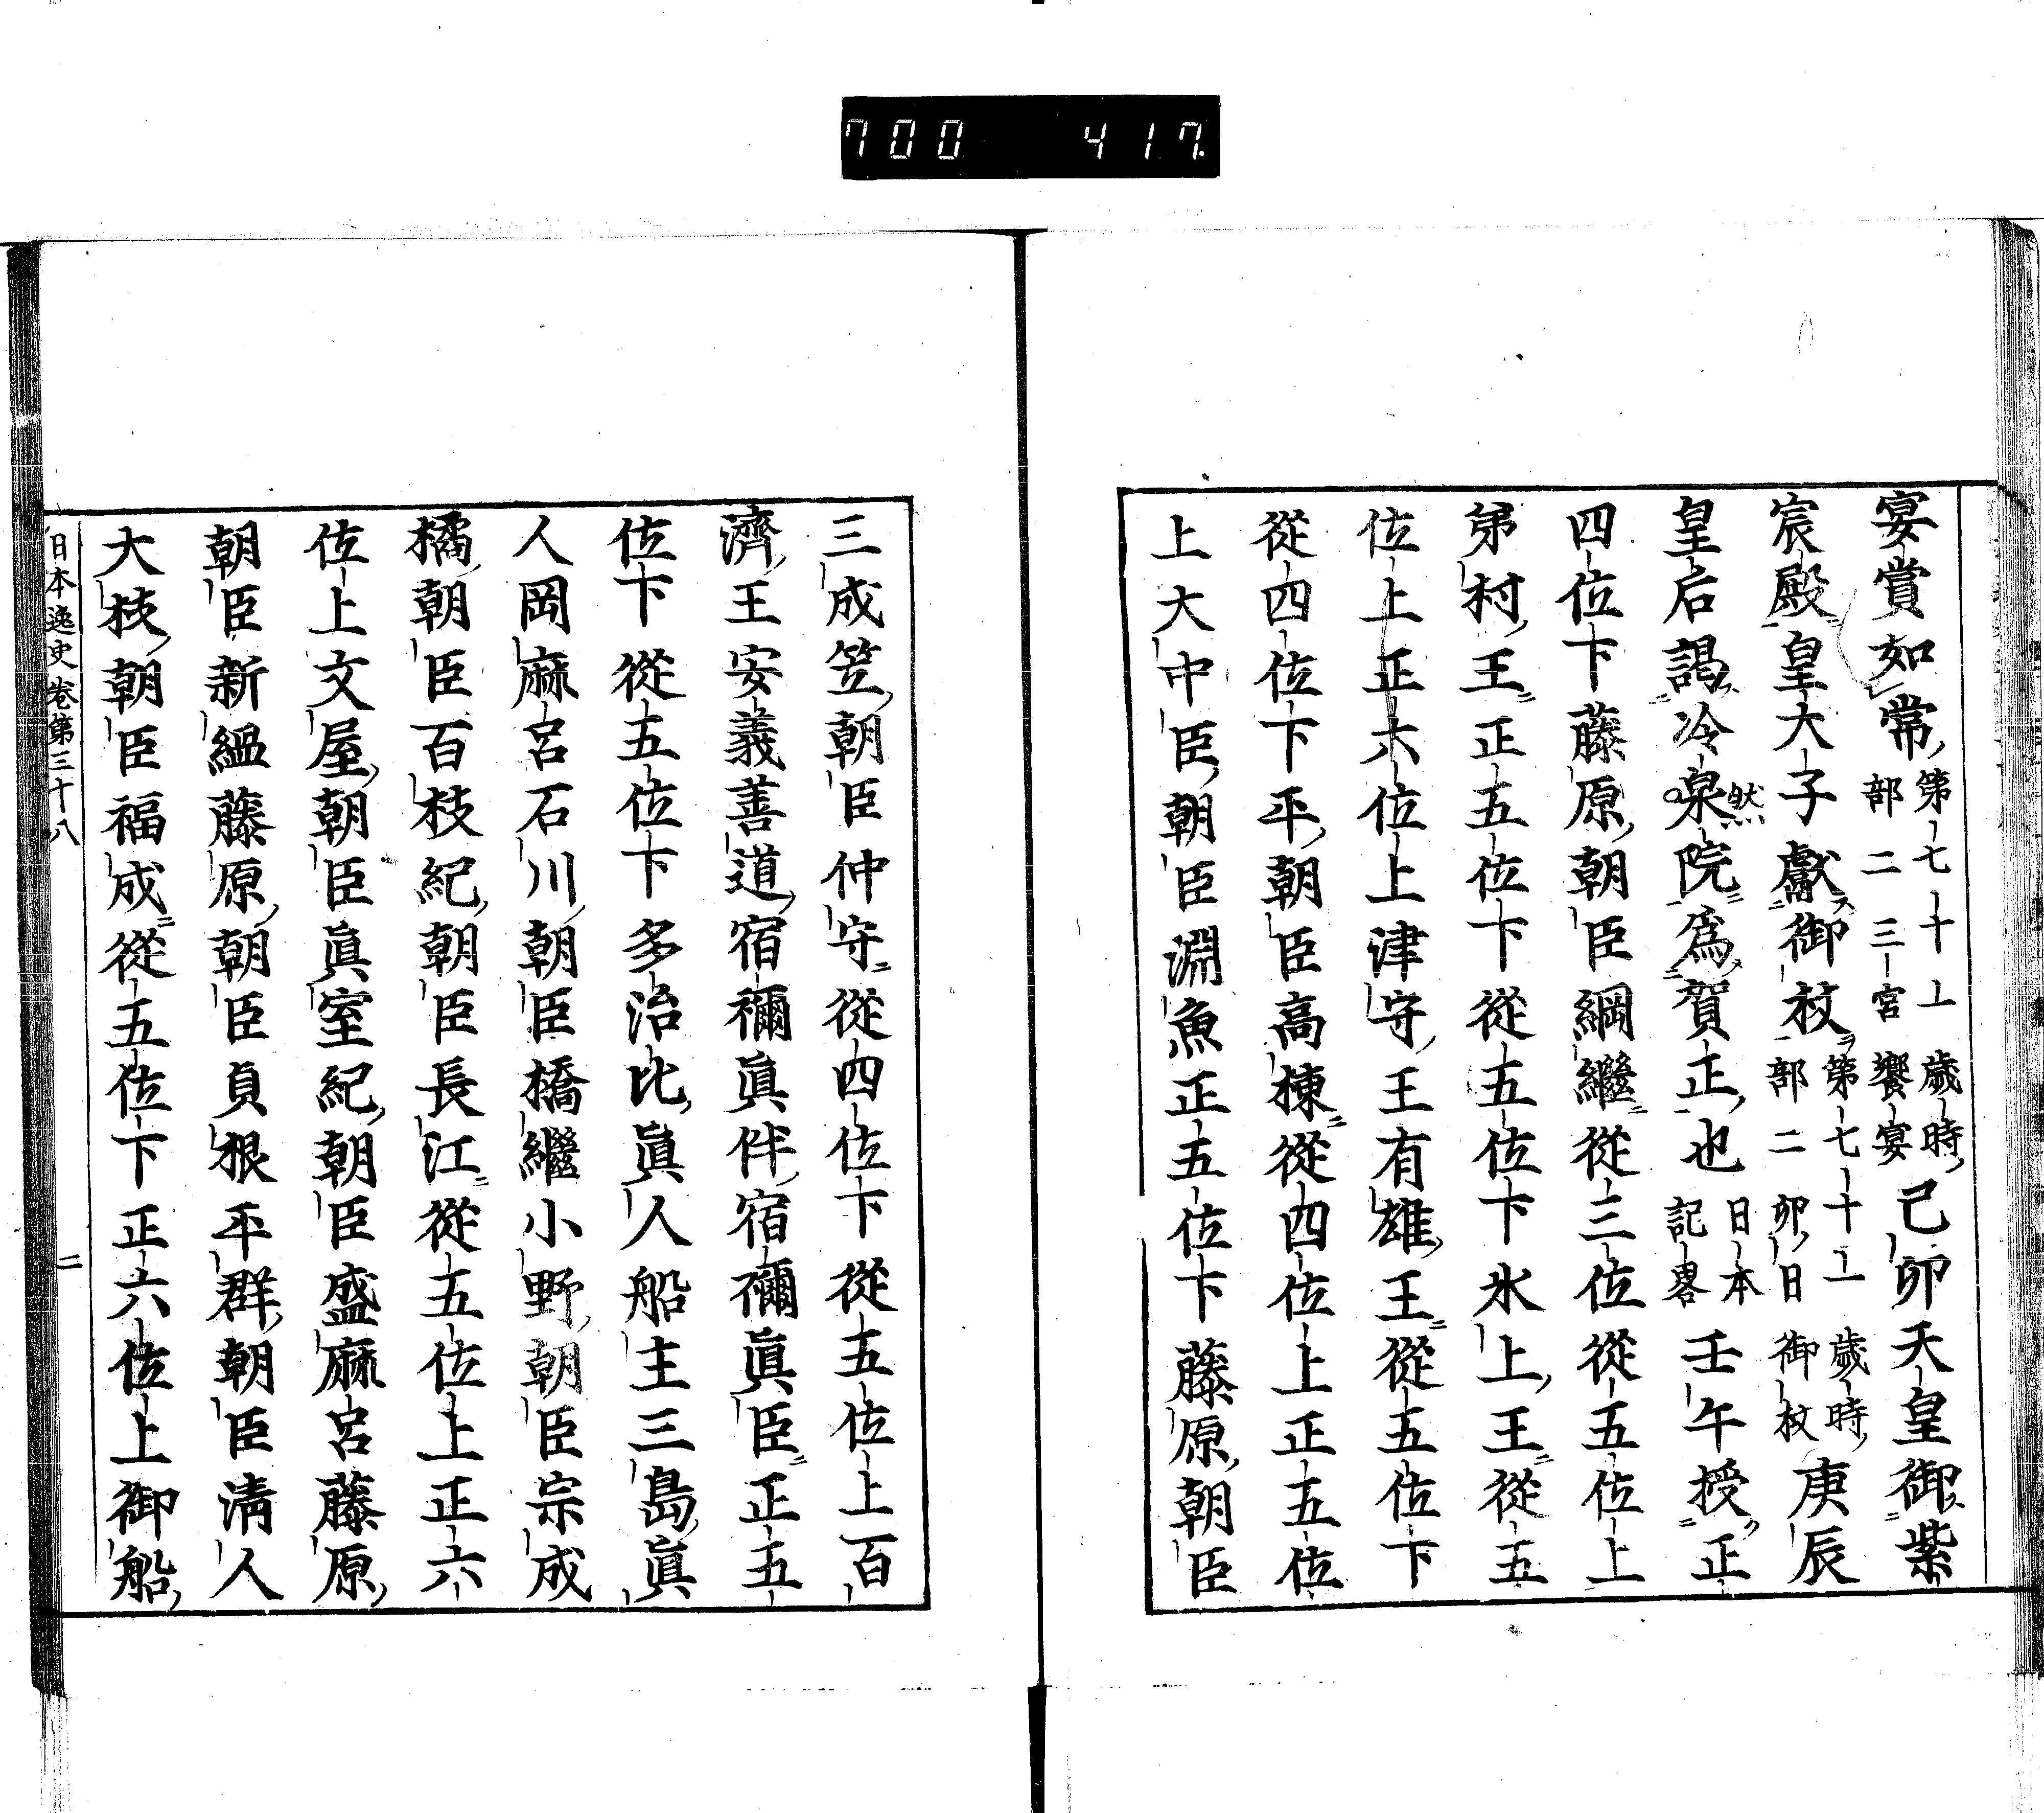 700 417
宴賞如常第七十一歳時部二三宮饗宴己卯天皇御紫
宸殿皇大子獻御杖第七十一歳時部二卯日御杖庚辰
皇后謁冷泉院為賀正也日本記畧壬午授正
然
四位下藤原朝臣綱繼從三位從五位上
弟村王正五位下從五位下氷上王從五
位上正六位上津守王有雄王從五位下
從四位下平朝臣高棟從四位上正五位
上大中臣朝臣淵魚正五位下藤原朝臣
三成笠朝臣仲守從四位下從五位上百
濟王安義善道宿禰眞伴宿禰眞臣正五
位下從五位下多治比眞人船主三島眞
人岡麻呂石川朝臣橋繼小野朝臣宗成
橘朝臣百枝紀朝臣長江從五位上正六
位上文屋朝臣眞室紀朝臣盛麻呂藤原
朝臣新緼藤原朝臣貞根平群朝臣清人
大枝朝臣福成從五位下正六位上御船
日本逸史卷第三十八 二